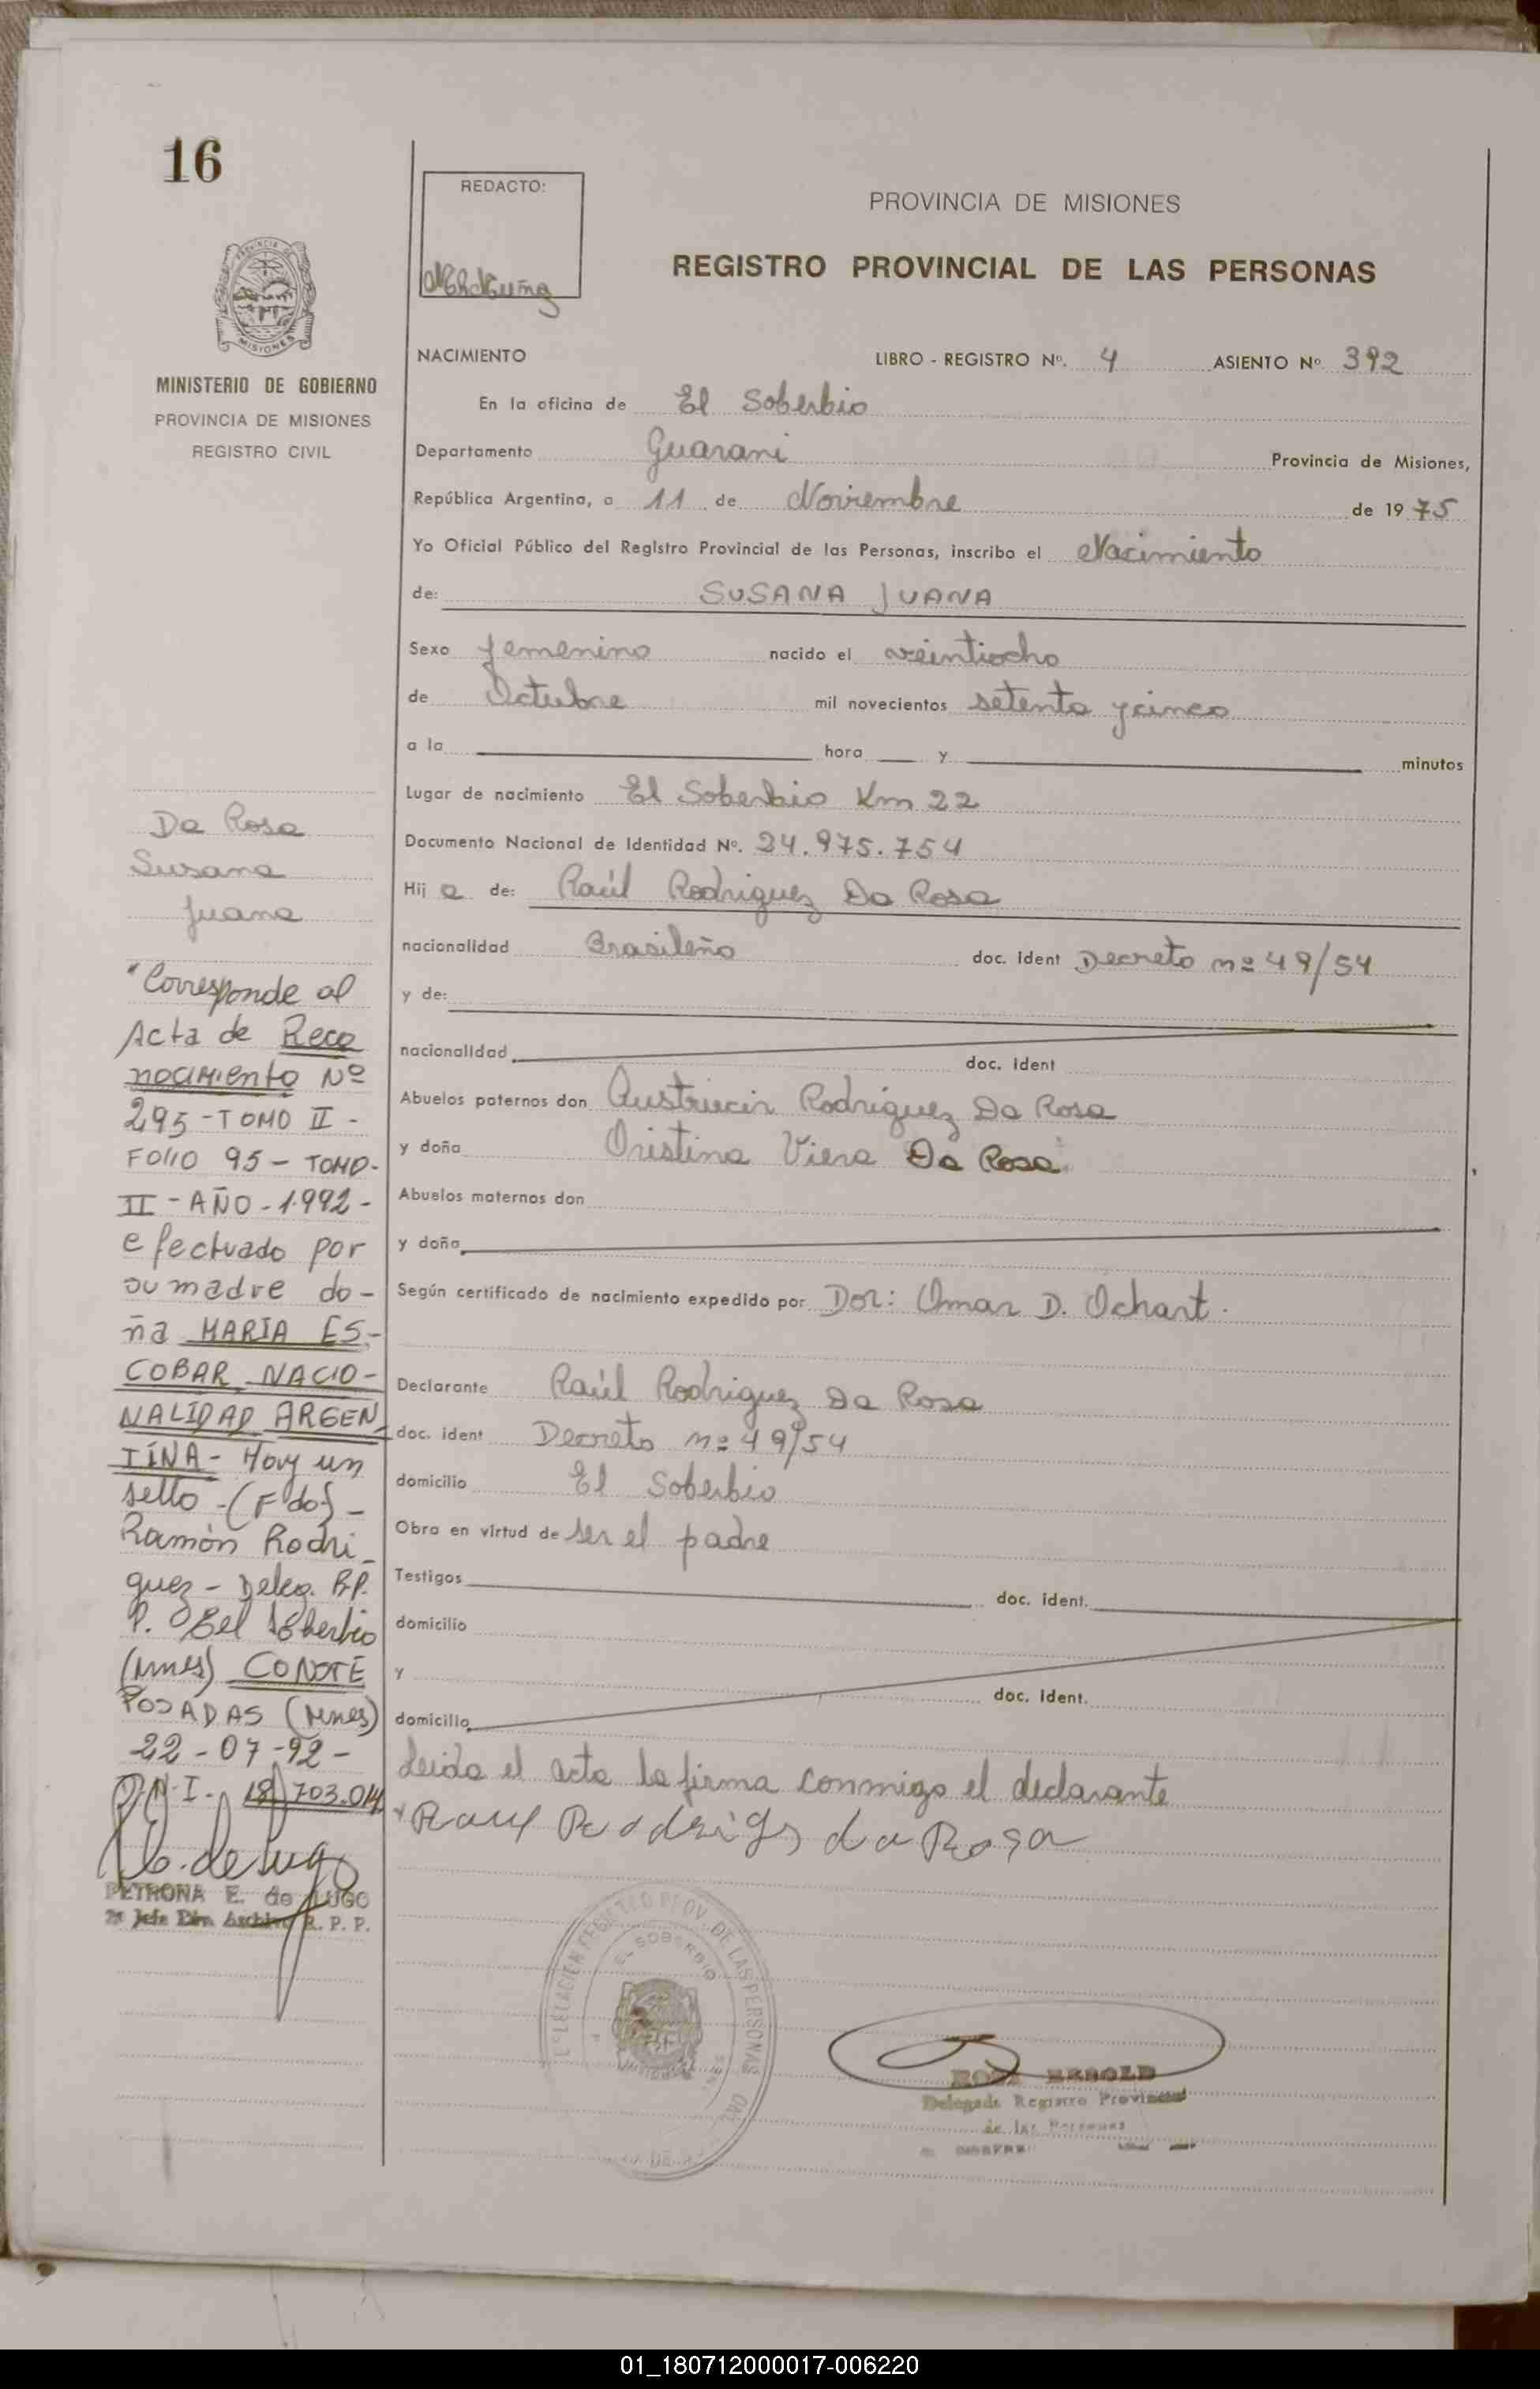 16
REDACTO:
PROVINCIA DE MISIONES
REGISTRO PROVINCIAL DE LAS PERSONAS
MISIONES
MINISTERIO DE GOBIERNO
PROVINCIA DE MISIONES
REGISTRO CIVIL
NACIMIENTO LIBRO - REGISTRO Nº. 4 ASIENTO Nº 392
En la oficina de El Soberbio
Departamento Guarani Provincia de Misiones,
República Argentina, a 11 de Noviembre de 19 75
Yo Oficial Público del Registro Provincial de las Personas, inscribo el Nacimiento
de: SUSANA JUANA
Sexo femenino nacido el veintiocho
de Octubre mil novecientos setenta y cinco
a la hora y minutos
Lugar de nacimiento El Soberbio Km 22
Documento Nacional de Identidad Nº. 24.975.754
Hij a de: Raúl Rodriguez Da Rosa
nacionalidad Brasileño doc. ident Decreto nº 49/54
y de:
nacionalidad doc. ident
Abuelos paternos don Rodriguez Da Rosa
y doña Viera Da Rosa
Abuelos maternos don
y doña
Según certificado de nacimiento expedido por Dor: Omar D. Ochart.
Declarante Raúl Rodriguez Da Rosa
doc. ident Decreto nº 49/54
domicilio El Soberbio
Obra en virtud de ser el padre
Testigos doc. ident.
domicilio
y doc. ident.
domicilio
Leida el acta la firma conmigo el declarante
Da Rosa
Susana
Juana
"Corresponde al
Acta de Reco
nocimiento Nº
295-TOMO II-
FOLIO 95- TOMO-
II-AÑO-1992-
efectuado por
su madre do-
ña MARIA ES-
COBAR NACIO-
NALIDAD ARGEN
TINA- Hay un
sello-(Fdo)-
Ramón Rodri-
guez- Deleg. R.P.
P. El Soberbio
(Mnes) CONSTE
POSADAS (Mnes)
22-07-92-
D.N.I. 18.703.014
PETRONA E. de LUGO
Jefe Archivo R. P. P.
REGISTRO PROV. DE LAS PERSONAS
EL SOBERBIO
Delegada Registro Provincial
de las Personas
01_180712000017-006220